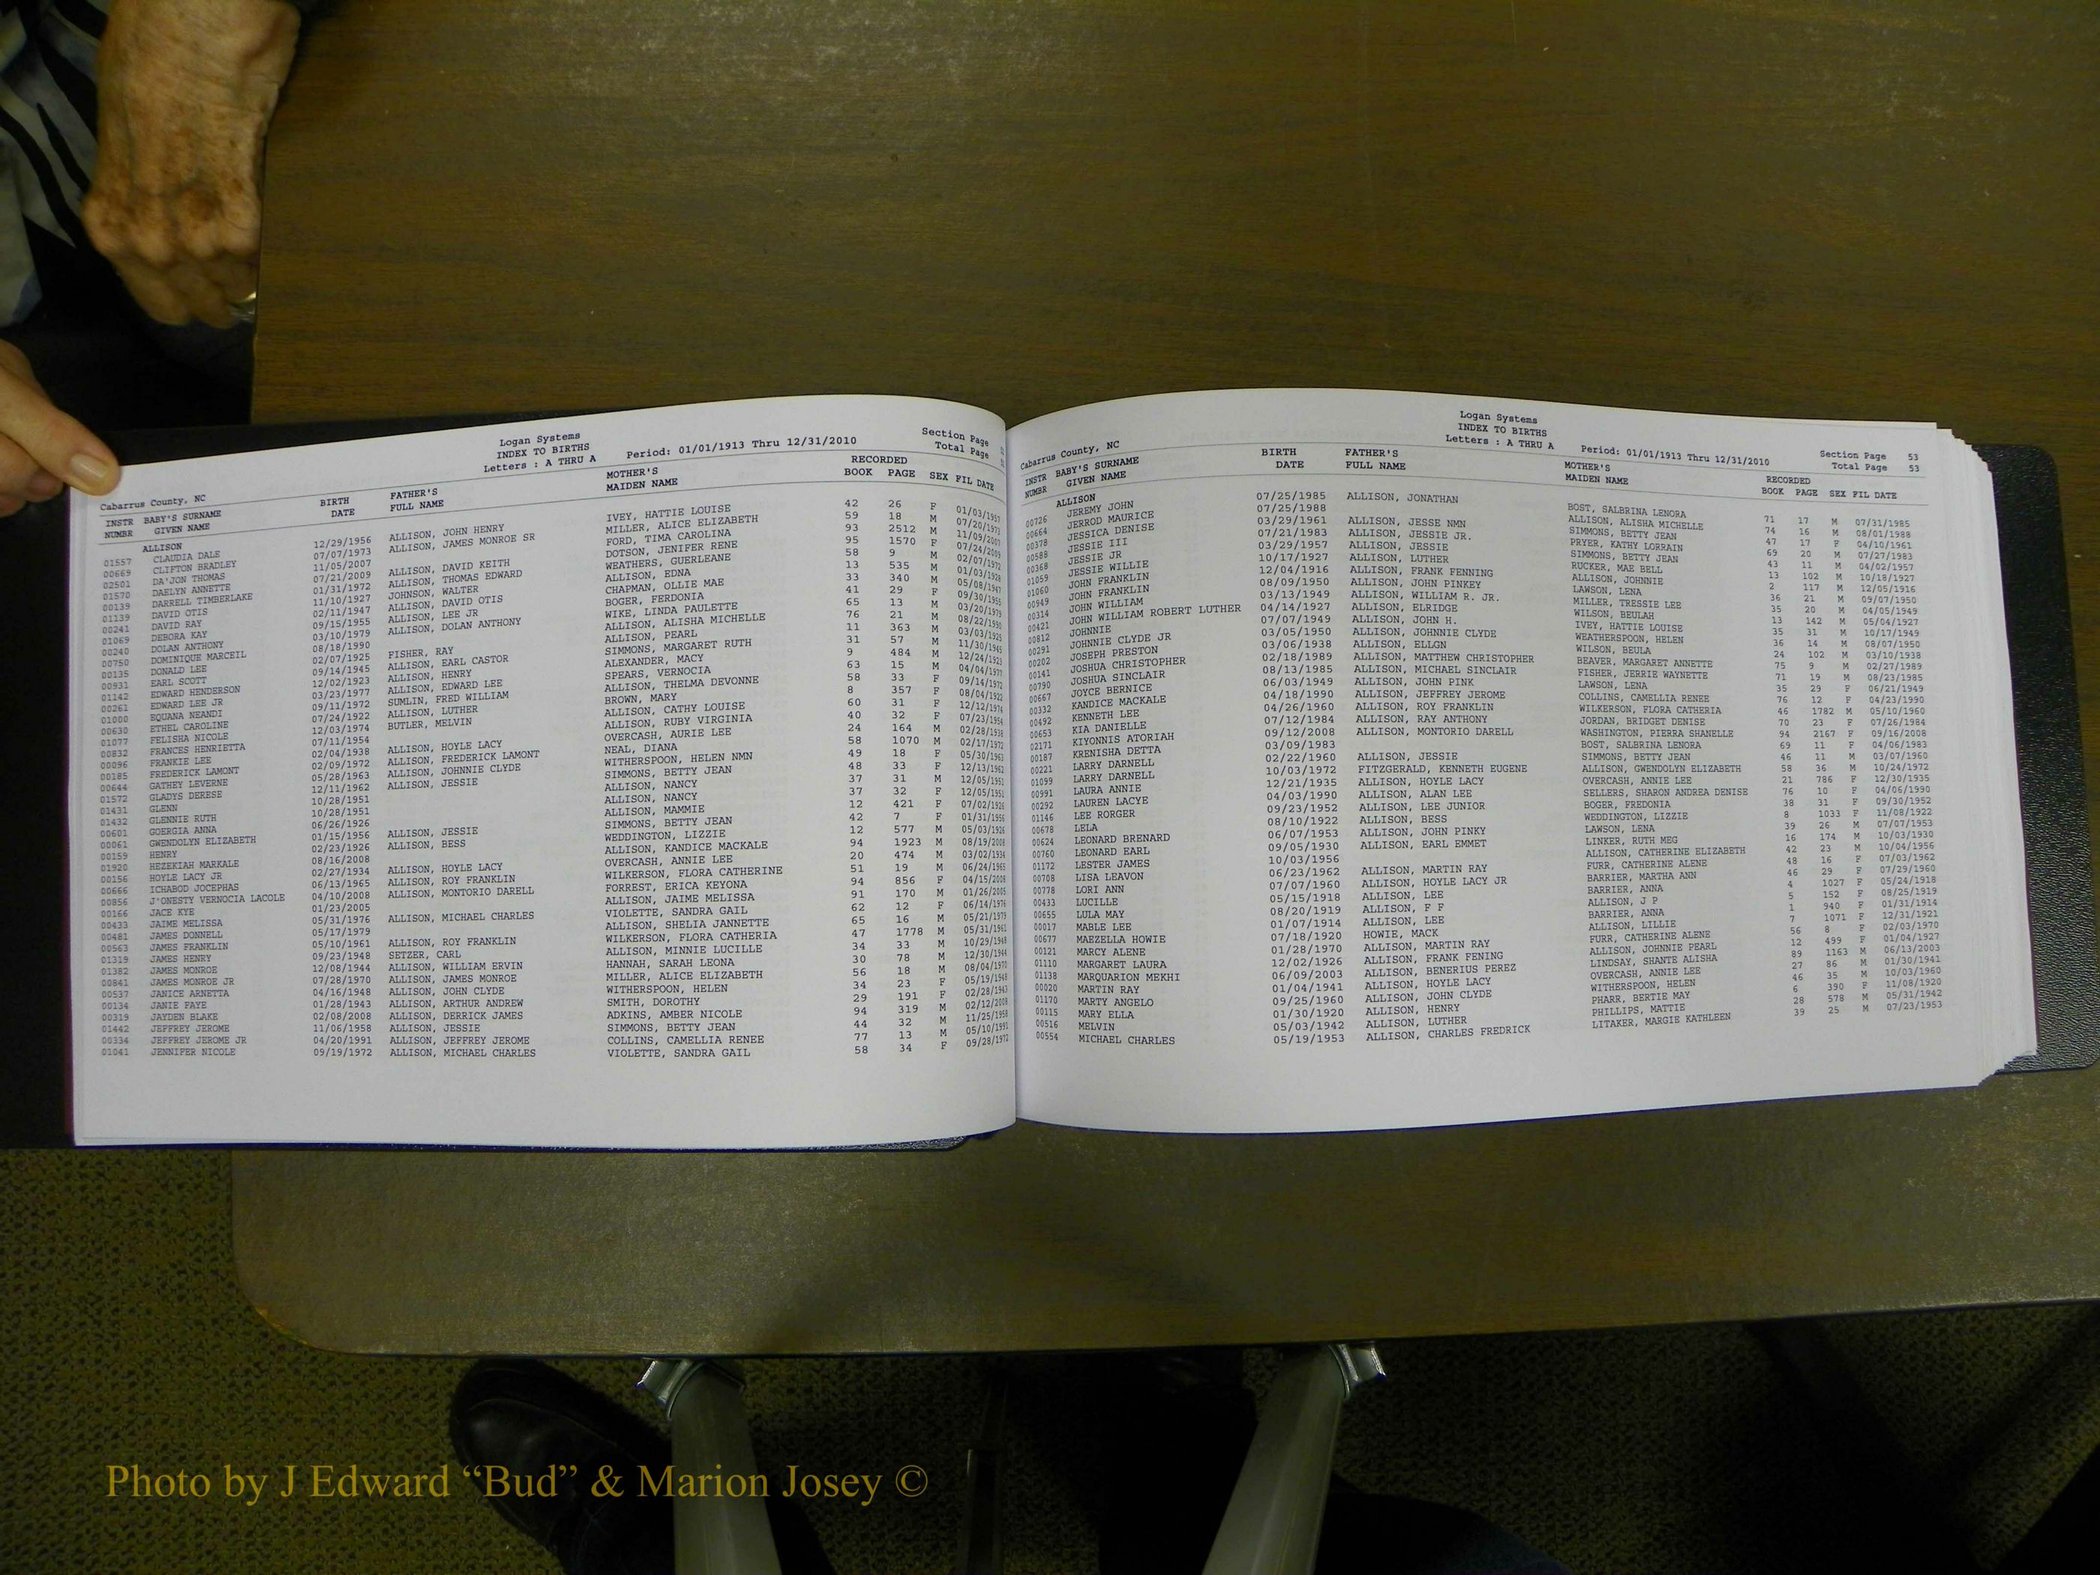 Logan Systems
INDEX TO BIRTHS
Letters : A THRU A Period: 01/01/1913 Thru 12/31/2010
Section Page
Total Page
Cabarrus County, NC
INSTR BABY'S SURNAME BIRTH FATHER'S MOTHER'S RECORDED
NUMBR GIVEN NAME DATE FULL NAME MAIDEN NAME BOOK PAGE SEX FIL DATE
ALLISON
01557 CLAUDIA DALE 12/29/1956 ALLISON, JOHN HENRY IVEY, HATTIE LOUISE 42 26 F 01/03/1957
00669 CLIFTON BRADLEY 07/07/1973 ALLISON, JAMES MONROE SR MILLER, ALICE ELIZABETH 59 18 M 07/20/1973
02501 DA'JON THOMAS 11/05/2007 FORD, TIMA CAROLINA 93 2512 M 11/09/2007
01570 DAELYN ANNETTE 07/21/2009 ALLISON, DAVID KEITH DOTSON, JENIFER RENE 95 1570 F 07/24/2009
00139 DARRELL TIMBERLAKE 01/31/1972 ALLISON, THOMAS EDWARD WEATHERS, GUERLEANE 58 9 M 02/07/1972
01139 DAVID OTIS 11/10/1927 JOHNSON, WALTER ALLISON, EDNA 13 535 M 01/03/1928
00241 DAVID RAY 02/11/1947 ALLISON, DAVID OTIS CHAPMAN, OLLIE MAE 33 340 M 05/08/1947
01069 DEBORA KAY 09/15/1955 ALLISON, LEE JR BOGER, FERDONIA 41 29 F 09/30/1955
00240 DOLAN ANTHONY 03/10/1979 ALLISON, DOLAN ANTHONY WIKE, LINDA PAULETTE 65 13 M 03/20/1979
00750 DOMINIQUE MARCEIL 08/18/1990 ALLISON, ALISHA MICHELLE 76 21 M 08/22/1990
00135 DONALD LEE 02/07/1925 FISHER, RAY ALLISON, PEARL 11 363 M 03/03/1925
00931 EARL SCOTT 09/14/1945 ALLISON, EARL CASTOR SIMMONS, MARGARET RUTH 31 57 M 11/30/1945
01142 EDWARD HENDERSON 12/02/1923 ALLISON, HENRY ALEXANDER, MACY 9 484 M 12/24/1923
00261 EDWARD LEE JR 03/23/1977 ALLISON, EDWARD LEE SPEARS, VERNOCIA 63 15 M 04/04/1977
01000 EQUANA NEANDI 09/11/1972 SUMLIN, FRED WILLIAM ALLISON, THELMA DEVONNE 58 33 F 09/14/1972
00630 ETHEL CAROLINE 07/24/1922 ALLISON, LUTHER BROWN, MARY 8 357 F 08/04/1922
01077 FELISHA NICOLE 12/03/1974 BUTLER, MELVIN ALLISON, CATHY LOUISE 60 31 F 12/12/1974
00832 FRANCES HENRIETTA 07/11/1954 ALLISON, RUBY VIRGINIA 40 32 F 07/23/1954
00096 FRANKIE LEE 02/04/1938 ALLISON, HOYLE LACY OVERCASH, AURIE LEE 24 164 M 02/28/1938
00185 FREDERICK LAMONT 02/09/1972 ALLISON, FREDERICK LAMONT NEAL, DIANA 58 1070 M 02/17/1972
00644 GATHEY LEVERNE 05/28/1963 ALLISON, JOHNNIE CLYDE WITHERSPOON, HELEN NMN 49 18 F 05/30/1963
01572 GLADYS DERESE 12/11/1962 ALLISON, JESSIE SIMMONS, BETTY JEAN 48 33 F 12/13/1962
01431 GLENN 10/28/1951 ALLISON, NANCY 37 31 M 12/05/1951
01432 GLENNIE RUTH 10/28/1951 ALLISON, NANCY 37 32 F 12/05/1951
00601 GOERGIA ANNA 06/26/1926 ALLISON, MAMMIE 12 421 F 07/02/1926
00061 GWENDOLYN ELIZABETH 01/15/1956 ALLISON, JESSIE SIMMONS, BETTY JEAN 42 7 F 01/31/1956
00159 HENRY 02/23/1926 ALLISON, BESS WEDDINGTON, LIZZIE 12 577 M 05/03/1926
01920 HEZEKIAH MARKALE 08/16/2008 ALLISON, KANDICE MACKALE 94 1923 M 08/19/2008
00156 HOYLE LACY JR 02/27/1934 ALLISON, HOYLE LACY OVERCASH, ANNIE LEE 20 474 M 03/02/1934
00666 ICHABOD JOCEPHAS 06/13/1965 ALLISON, ROY FRANKLIN WILKERSON, FLORA CATHERINE 51 19 M 06/24/1965
00856 J'ONESTY VERNOCIA LACOLE 04/10/2008 ALLISON, MONTORIO DARELL FORREST, ERICA KEYONA 94 856 F 04/15/2008
00166 JACE KYE 01/23/2005 ALLISON, JAIME MELISSA 91 170 M 01/26/2005
00433 JAIME MELISSA 05/31/1976 ALLISON, MICHAEL CHARLES VIOLETTE, SANDRA GAIL 62 12 F 06/14/1976
00481 JAMES DONNELL 05/17/1979 ALLISON, SHELIA JANNETTE 65 16 M 05/21/1979
00563 JAMES FRANKLIN 05/10/1961 ALLISON, ROY FRANKLIN WILKERSON, FLORA CATHERIA 47 1778 M 05/31/1961
01319 JAMES HENRY 09/23/1948 SETZER, CARL ALLISON, MINNIE LUCILLE 34 33 M 10/29/1948
01382 JAMES MONROE 12/08/1944 ALLISON, WILLIAM ERVIN HANNAH, SARAH LEONA 30 78 M 12/30/1944
00841 JAMES MONROE JR 07/28/1970 ALLISON, JAMES MONROE MILLER, ALICE ELIZABETH 56 18 M 08/04/1970
00537 JANICE ARNETTA 04/16/1948 ALLISON, JOHN CLYDE WITHERSPOON, HELEN 34 23 F 05/19/1948
00134 JANIE FAYE 01/28/1943 ALLISON, ARTHUR ANDREW SMITH, DOROTHY 29 191 F 02/28/1943
00319 JAYDEN BLAKE 02/08/2008 ALLISON, DERRICK JAMES ADKINS, AMBER NICOLE 94 319 M 02/12/2008
01442 JEFFREY JEROME 11/06/1958 ALLISON, JESSIE SIMMONS, BETTY JEAN 44 32 M 11/25/1958
00334 JEFFREY JEROME JR 04/20/1991 ALLISON, JEFFREY JEROME COLLINS, CAMELLIA RENEE 77 13 M 05/10/1991
01041 JENNIFER NICOLE 09/19/1972 ALLISON, MICHAEL CHARLES VIOLETTE, SANDRA GAIL 58 34 F 09/28/1972
Logan Systems
INDEX TO BIRTHS
Letters : A THRU A Period: 01/01/1913 Thru 12/31/2010
Section Page 53
Total Page 53
Cabarrus County, NC
INSTR BABY'S SURNAME BIRTH FATHER'S MOTHER'S RECORDED
NUMBR GIVEN NAME DATE FULL NAME MAIDEN NAME BOOK PAGE SEX FIL DATE
ALLISON
00726 JEREMY JOHN 07/25/1985 ALLISON, JONATHAN BOST, SALBRINA LENORA 71 17 M 07/31/1985
00664 JERROD MAURICE 07/25/1988 ALLISON, ALISHA MICHELLE 74 16 M 08/01/1988
00378 JESSICA DENISE 03/29/1961 ALLISON, JESSE NMN SIMMONS, BETTY JEAN 47 17 F 04/10/1961
00588 JESSIE III 07/21/1983 ALLISON, JESSIE JR. PRYER, KATHY LORRAIN 69 20 M 07/27/1983
00368 JESSIE JR 03/29/1957 ALLISON, JESSIE SIMMONS, BETTY JEAN 43 11 M 04/02/1957
01059 JESSIE WILLIE 10/17/1927 ALLISON, LUTHER RUCKER, MAE BELL 13 102 M 10/18/1927
01060 JOHN FRANKLIN 12/04/1916 ALLISON, FRANK FENNING ALLISON, JOHNNIE 2 117 M 12/05/1916
00949 JOHN FRANKLIN 08/09/1950 ALLISON, JOHN PINKEY LAWSON, LENA 36 21 M 09/07/1950
00314 JOHN WILLIAM 03/13/1949 ALLISON, WILLIAM R. JR. MILLER, TRESSIE LEE 35 20 M 04/05/1949
00421 JOHN WILLIAM ROBERT LUTHER 04/14/1927 ALLISON, ELRIDGE WILSON, BEULAH 13 142 M 05/04/1927
00812 JOHNNIE 07/07/1949 ALLISON, JOHN H. IVEY, HATTIE LOUISE 35 31 M 10/17/1949
00291 JOHNNIE CLYDE JR 03/05/1950 ALLISON, JOHNNIE CLYDE WEATHERSPOON, HELEN 36 14 M 08/07/1950
00202 JOSEPH PRESTON 03/06/1938 ALLISON, ELLGN WILSON, BEULA 24 102 M 03/10/1938
00141 JOSHUA CHRISTOPHER 02/18/1989 ALLISON, MATTHEW CHRISTOPHER BEAVER, MARGARET ANNETTE 75 9 M 02/27/1989
00790 JOSHUA SINCLAIR 08/13/1985 ALLISON, MICHAEL SINCLAIR FISHER, JERRIE WAYNETTE 71 19 M 08/23/1985
00667 JOYCE BERNICE 06/03/1949 ALLISON, JOHN PINK LAWSON, LENA 35 29 F 06/21/1949
00332 KANDICE MACKALE 04/18/1990 ALLISON, JEFFREY JEROME COLLINS, CAMELLIA RENEE 76 12 F 04/23/1990
00492 KENNETH LEE 04/26/1960 ALLISON, ROY FRANKLIN WILKERSON, FLORA CATHERIA 46 1782 M 05/10/1960
00653 KIA DANIELLE 07/12/1984 ALLISON, RAY ANTHONY JORDAN, BRIDGET DENISE 70 23 F 07/26/1984
02171 KIYONNIS ATORIAH 09/12/2008 ALLISON, MONTORIO DARELL WASHINGTON, PIERRA SHANELLE 94 2167 F 09/16/2008
00187 KRENISHA DETTA 03/09/1983 BOST, SALBRINA LENORA 69 11 F 04/06/1983
00221 LARRY DARNELL 02/22/1960 ALLISON, JESSIE SIMMONS, BETTY JEAN 46 11 M 03/07/1960
01099 LARRY DARNELL 10/03/1972 FITZGERALD, KENNETH EUGENE ALLISON, GWENDOLYN ELIZABETH 58 36 M 10/24/1972
00991 LAURA ANNIE 12/21/1935 ALLISON, HOYLE LACY OVERCASH, ANNIE LEE 21 786 F 12/30/1935
00292 LAUREN LACYE 04/03/1990 ALLISON, ALAN LEE SELLERS, SHARON ANDREA DENISE 76 10 F 04/06/1990
01146 LEE RORGER 09/23/1952 ALLISON, LEE JUNIOR BOGER, FREDONIA 38 31 F 09/30/1952
00678 LELA 08/10/1922 ALLISON, BESS WEDDINGTON, LIZZIE 8 1033 F 11/08/1922
00624 LEONARD BRENARD 06/07/1953 ALLISON, JOHN PINKY LAWSON, LENA 39 26 M 07/07/1953
00760 LEONARD EARL 09/05/1930 ALLISON, EARL EMMET LINKER, RUTH MEG 16 174 M 10/03/1930
01172 LESTER JAMES 10/03/1956 ALLISON, CATHERINE ELIZABETH 42 23 M 10/04/1956
00708 LISA LEAVON 06/23/1962 ALLISON, MARTIN RAY FURR, CATHERINE ALENE 48 16 F 07/03/1962
00778 LORI ANN 07/07/1960 ALLISON, HOYLE LACY JR BARRIER, MARTHA ANN 46 29 F 07/29/1960
00433 LUCILLE 05/15/1918 ALLISON, LEE BARRIER, ANNA 4 1027 F 05/24/1918
00655 LULA MAY 08/20/1919 ALLISON, F F ALLISON, J P 5 152 F 08/25/1919
00017 MABLE LEE 01/07/1914 ALLISON, LEE BARRIER, ANNA 1 940 F 01/31/1914
00677 MAEZELLA HOWIE 07/18/1920 HOWIE, MACK ALLISON, LILLIE 7 1071 F 12/31/1921
00121 MARCY ALENE 01/28/1970 ALLISON, MARTIN RAY FURR, CATHERINE ALENE 56 8 F 02/03/1970
01110 MARGARET LAURA 12/02/1926 ALLISON, FRANK FENING ALLISON, JOHNNIE PEARL 12 499 F 01/04/1927
01138 MARQUARION MEKHI 06/09/2003 ALLISON, BENERIUS PEREZ LINDSAY, SHANTE ALISHA 89 1163 M 06/13/2003
00020 MARTIN RAY 01/04/1941 ALLISON, HOYLE LACY OVERCASH, ANNIE LEE 27 86 M 01/30/1941
01170 MARTY ANGELO 09/25/1960 ALLISON, JOHN CLYDE WITHERSPOON, HELEN 46 35 M 10/03/1960
00115 MARY ELLA 01/30/1920 ALLISON, HENRY PHARR, BERTIE MAY 6 390 F 11/08/1920
00516 MELVIN 05/03/1942 ALLISON, LUTHER PHILLIPS, MATTIE 28 578 M 05/31/1942
00554 MICHAEL CHARLES 05/19/1953 ALLISON, CHARLES FREDRICK LITAKER, MARGIE KATHLEEN 39 25 M 07/23/1953
Photo by J Edward “Bud” & Marion Josey ©